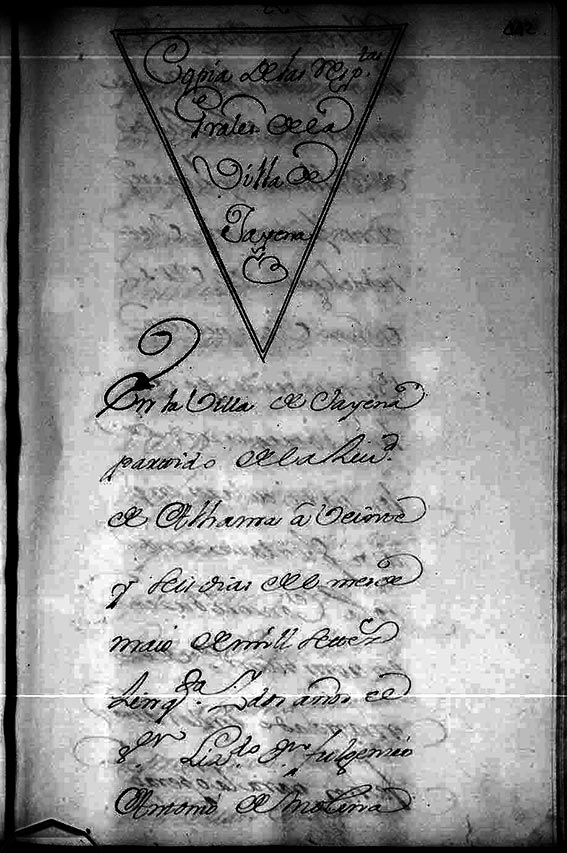 Copia de las Resp.tas
Grales de la
Villa de
Jayena
En la Villa de Jayena
partido de la Ciud.d
de Alhama â Veinte
y seis dias de el mes de
maio de mill setez.s
Cinq.ta y dos años el
S.or Liz.do D.n fulgencio
Antonio de Molina